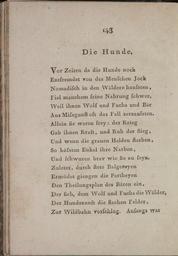 143
Die Hunde.
Vor Zeiten da die Hunde noch
Entfremdet von des Menschen Joch
Nomadisch in den Wäldern hausten,
Fiel manchem seine Nahrung schwer,
Weil ihnen Wolf und Fuchs und Bär
Aus Missgunst oft das Fell
Allein sie waren frey: der Krieg
Gab ihnen Kraft, und Ruh der Sieg,
Und wenn die grauen Helden
So
Und schwuren brav wie Sie zu seyn.
Zuletzt, durch stete Balgereyen
Ermüdet giengen die Partheyen
Den Theilungsplan des Bären ein,
Der sich, dem Wolf und Fuchs die Wälder,
Der Hundezunft die flachen Felder,
Zur Wildbahn vorschlug. Anfangs war